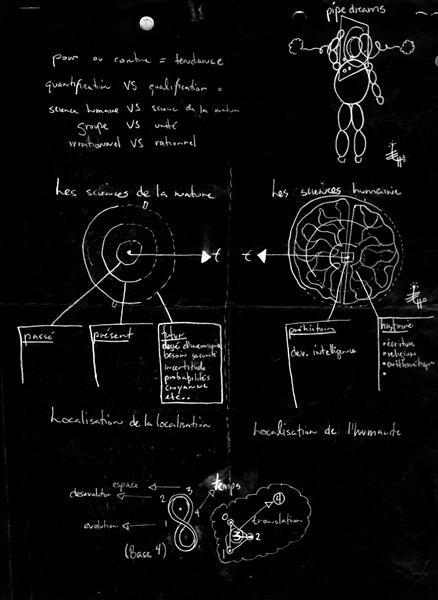 pipe dreams
pour ou contre = tendance
quantification VS qualification =
science humaine VS science de la nature
groupe VS unité
irrationnel VS rationnel
Les sciences de la nature
Les sciences humaine
t
t
passé
présent
futur
besoin sécurité
incertitude
probabilités
croyance
etc..
préhistoire
dev. intelligence
histoire
• écriture
• religion
Localisation de la localisation
Localisation de l'humanité
espace
temps
3
2
4
1
evolution
(Base 4)
0
4
translation
3
2
1